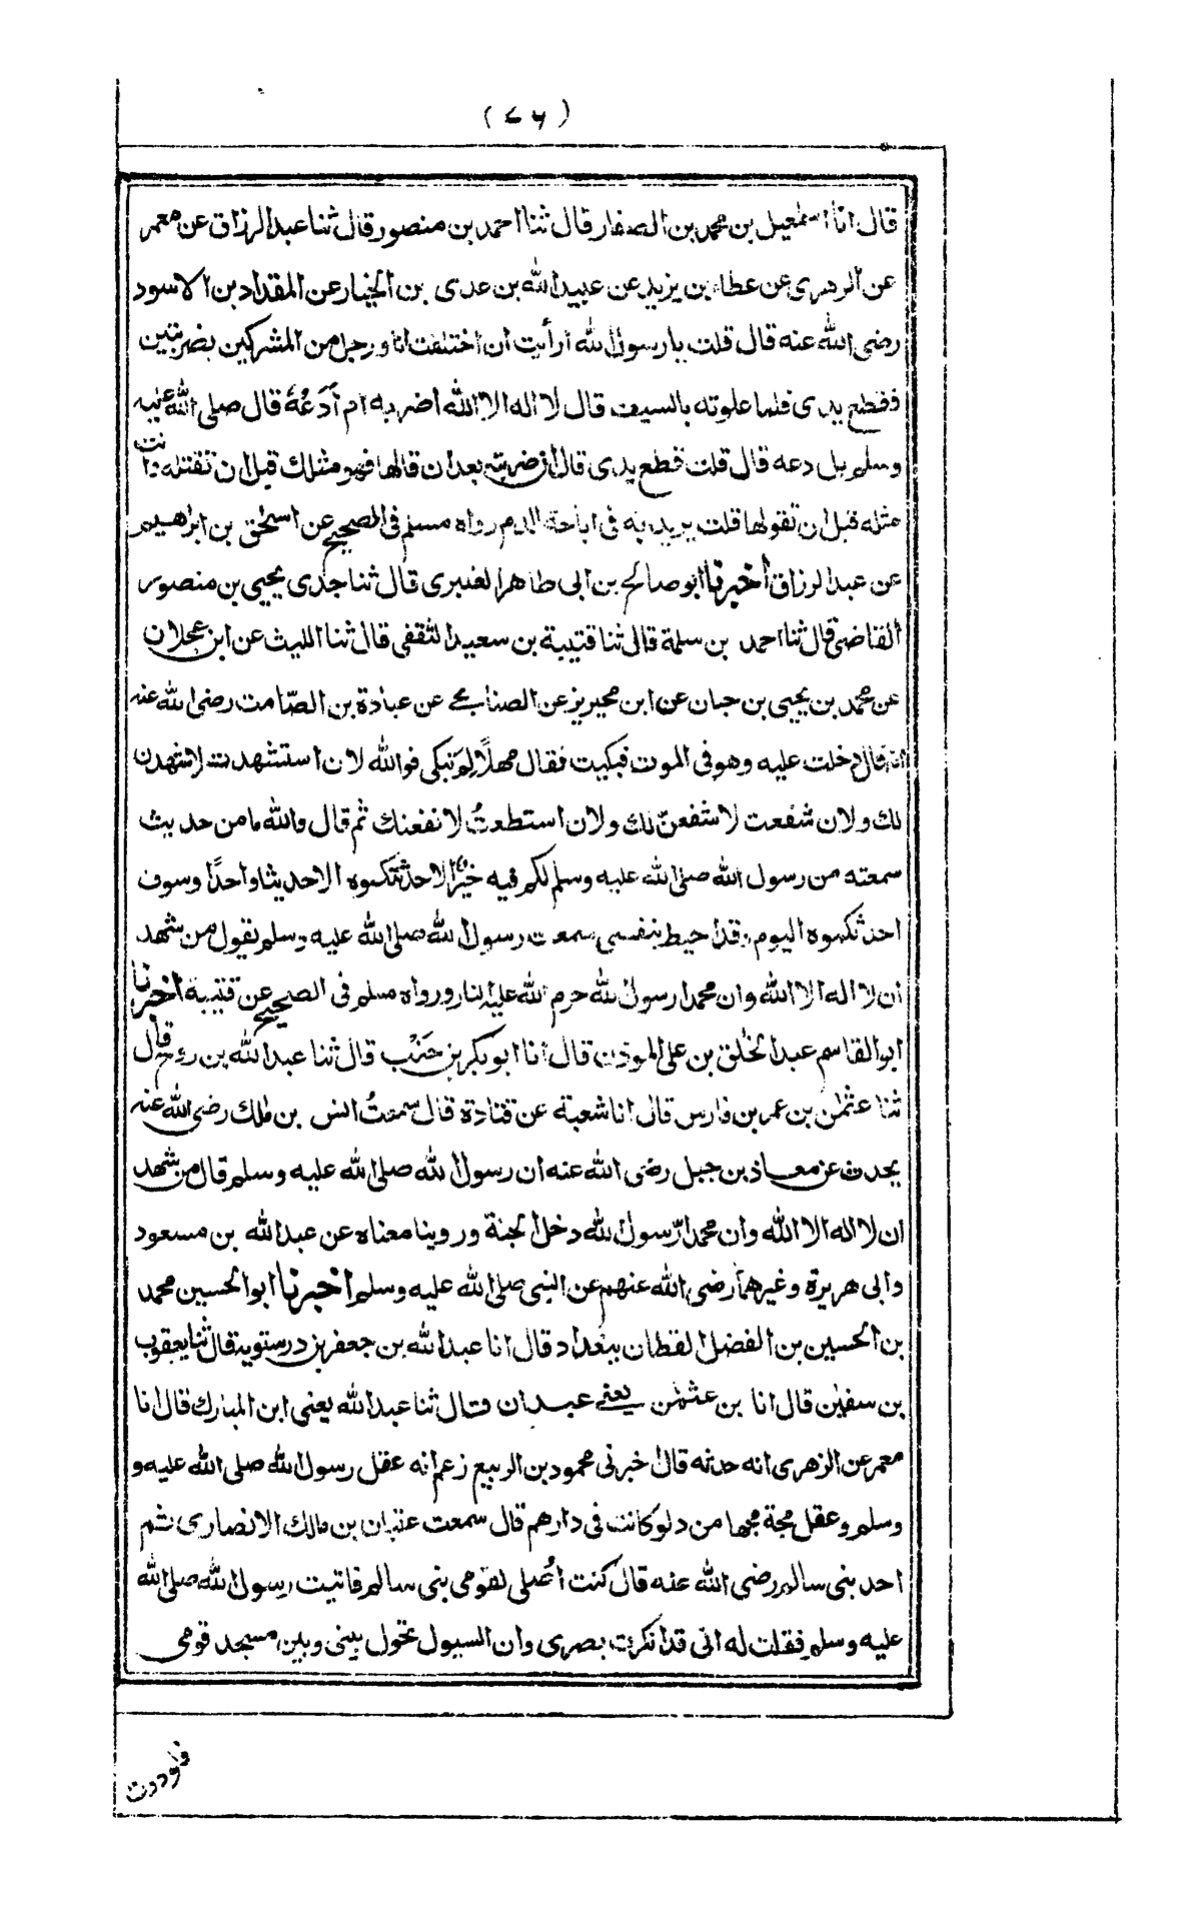 (٧٦)
قال انا اسمٰعيل بن محمد بن الصفار قال ثنا احمد بن منصور قال ثنا عبد الرزاق عن معمر
عن الزهرى عن عطاء بن يزيد عن عبيد الله بن عدى بن الخيار عن المقداد بن الاسود
رضى الله عنه قال قلت يا رسول الله ارأيت ان اختلفت انا ورجل من المشركين بضربتين
فقطع يدى فلما علوته بالسيف قال لا اله الا الله اضربه ام أَدَعُهُ قال صلى الله عليه
وسلم بل دعه قال قلت قطع يدى قال ان ضربته بعد ان قالها فهو مثلك قبل ان تقتله وانت
مثله قبل ان تقولها قلت يريد به فى اباحة الدم رواه مسلم فى الصحيح عن اسحٰق بن ابراهيم
عن عبد الرزاق اخبرنا ابو صالح بن ابى طاهر العنبرى قال ثنا جدى يحيى بن منصور
القاضى قال ثنا احمد بن سلمة قال ثنا قتيبة بن سعيد الثقفى قال ثنا الليث عن ابن عجلان
عن محمد بن يحيى بن حبان عن ابن محيريز عن الصنابحى عن عبادة بن الصّامت رضى الله عنه
انه قال دخلت عليه وهو فى الموت فبكيت فقال مهلاً لِمَ تبكى فوالله لان استشهدت لاشهدن
لك ولان شفعت لاشفعنّ لك ولان استطعتُ لانفعنك ثم قال والله ما من حديث
سمعته من رسول الله صلى الله عليه وسلم لكم فيه خيرٌ الا حدثتكموه الا حديثا واحدًا وسوف
احدثكموه اليوم وقد احيط بنفسى سمعت رسول الله صلى الله عليه وسلم يقول من شهد
ان لا اله الا الله وان محمدا رسول الله حرم الله عليه النار ورواه مسلم فى الصحيح عن قتيبة اخبرنا
ابو القاسم عبد الخالق بن على الموذن قال انا ابو بكر بن خَنْب قال ثنا عبد الله بن روح قال
ثنا عثمٰن بن عمر بن فارس قال انا شعبة عن قتادة قال سمعتُ انس بن مٰلك رضى الله عنه
يحدث عن معاذ بن جبل رضى الله عنه ان رسول الله صلى الله عليه وسلم قال من شهد
ان لا اله الا الله وان محمدا رّسول الله دخل الجنة وروينا معناه عن عبد الله بن مسعود
وابى هريرة وغيرهما رضى الله عنهم عن النبى صلى الله عليه وسلم اخبرنا ابو الحسين محمد
بن الحسين بن الفضل القطان ببغداد قال انا عبد الله بن جعفر بن درستويه قال ثنا يعقوب
بن سفيٰن قال انا بن عثمٰن يعنى عبدان قال ثنا عبد الله يعنى ابن المبارك قال انا
معمر عن الزهرى انه حدثه قال اخبرنى محمود بن الربيع زعم انه عقل رسول الله صلى الله عليه و
وسلم وعقل مجة مجها من دلو كانت فى دارهم قال سمعت عتبان بن مالك الانصارى ثم
احد بنى سالم رضى الله عنه قال كنت اُصلى لقومى بنى سالم فاتيت رسول الله صلى الله
عليه وسلم فقلت له انى قد انكرت بصرى وان السيول تحول بينى وبين مسجد قومى
فلوددت